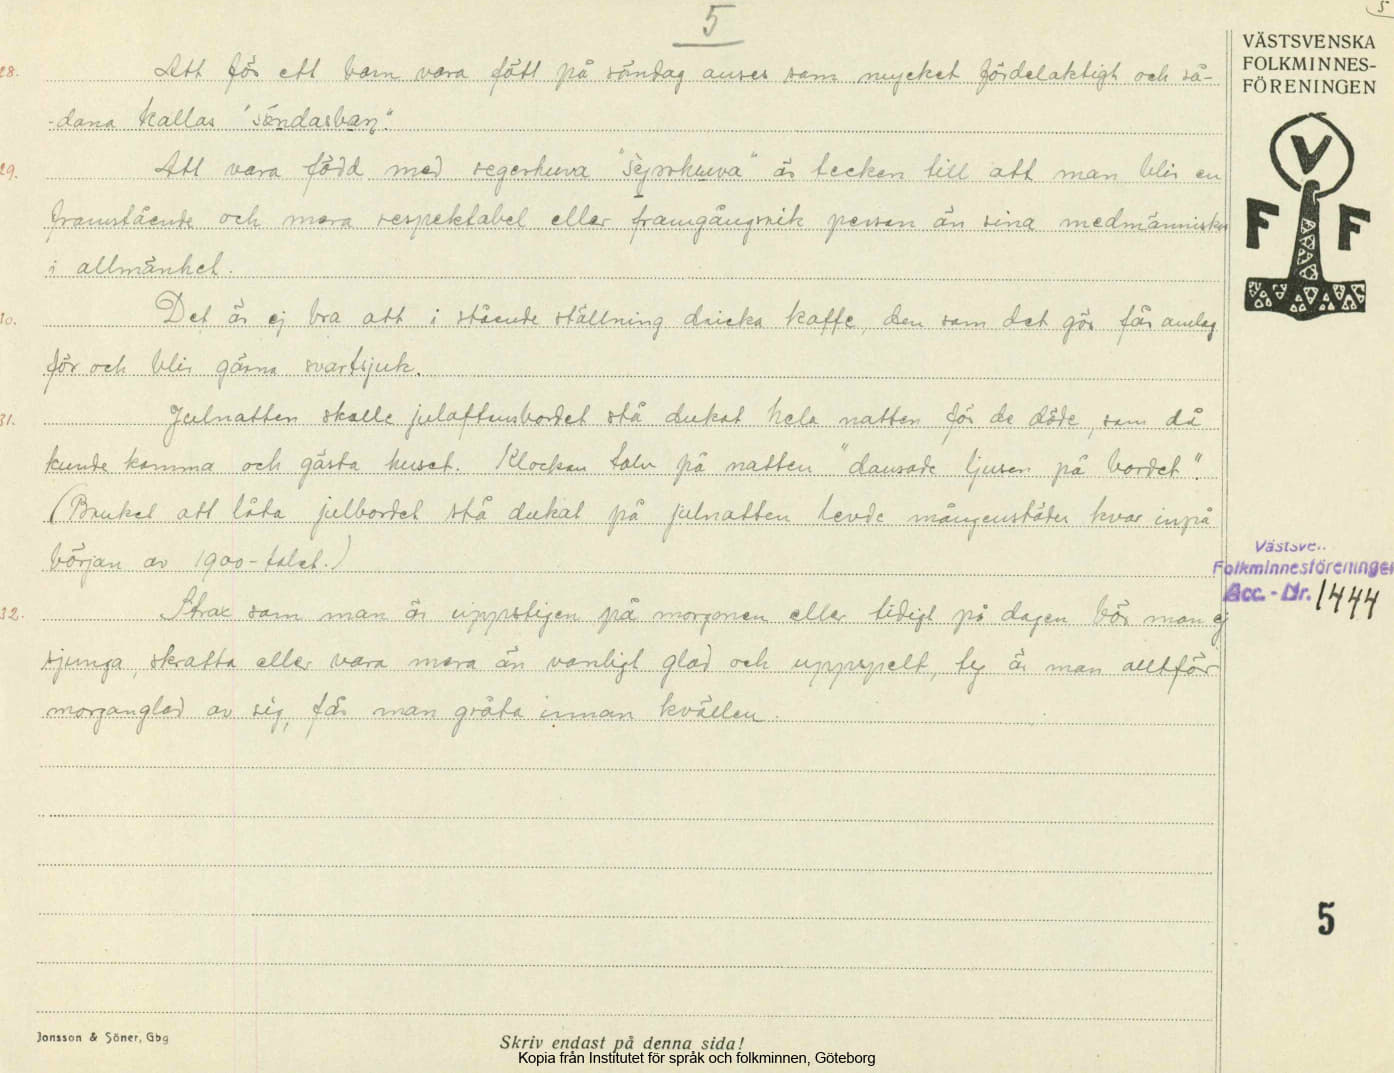 5
5
VÄSTSVENSKA
FOLKMINNES-
FÖRENINGEN
V
F F
28. Att för ett barn vara fött på söndag anses som mycket fördelaktigt och så-
-dana kallas "söndasban".
29. Att vara född med segerhuva "sejrshuva" är tecken till att man blir en
framstående och mera respektabel eller framgångsrik person än sina medmänniskor
i allmänhet.
30. Det är ej bra att i stående ställning dricka kaffe, den som det gör får anlag
för och blir gärna svartsjuk.
31. Julnatten skulle julaftonsbordet stå dukat hela natten för de döde, som då
kunde komma och gästa huset. Klockan tolv på natten "dansade ljusen på bordet".
(Bruket att låta julbordet stå dukat på julnatten levde mångenstädes kvar inpå
början av 1900-talet.)
32. Strax som man är uppstigen på morgonen eller tidigt på dagen bör man ej
sjunga, skratta eller vara mera än vanligt glad och uppspelt, ty är man alltför
morgonglad av sig, får man gråta innan kvällen.
Västsve..
Folkminnesföreningen
Acc. - Nr. 1444
5
Jonsson & Söner, Gbg
Skriv endast på denna sida!
Kopia från Institutet för språk och folkminnen, Göteborg